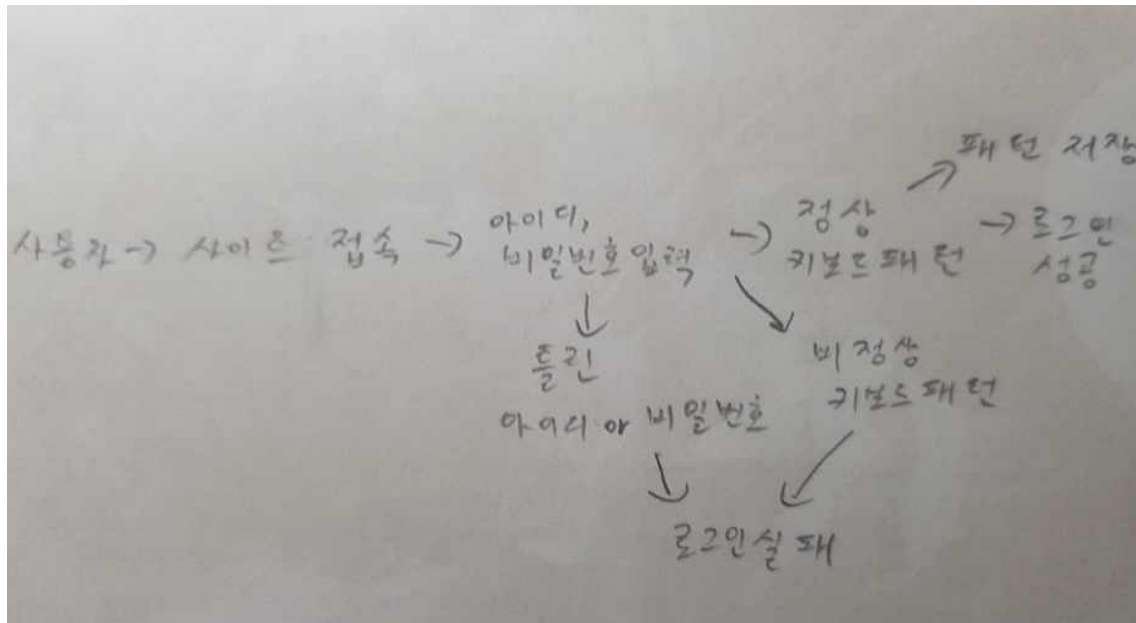 패턴 저장
사용자 → 사이트 접속 → 아이디,
비밀번호 입력 → 정상
키보드패턴 → 로그인
성공
틀린
아이디 or 비밀번호
비정상
키보드패턴
로그인실패